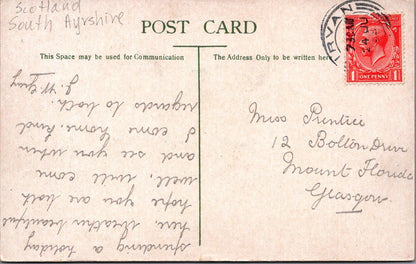 Scotland
South Ayrshire
POST CARD
This Space may be used for Communication
The Address Only to be written here
spending a holiday
here, weather beautiful
hope you are both
well, will come
and see you when
I come home. Kind
regards to both.
J. W. Gray
GIRVAN
7 30 PM
24 JU
POSTAGE
1 ONE PENNY 1
Miss Prentice
12 Bolton Drive
Mount Florida
Glasgow